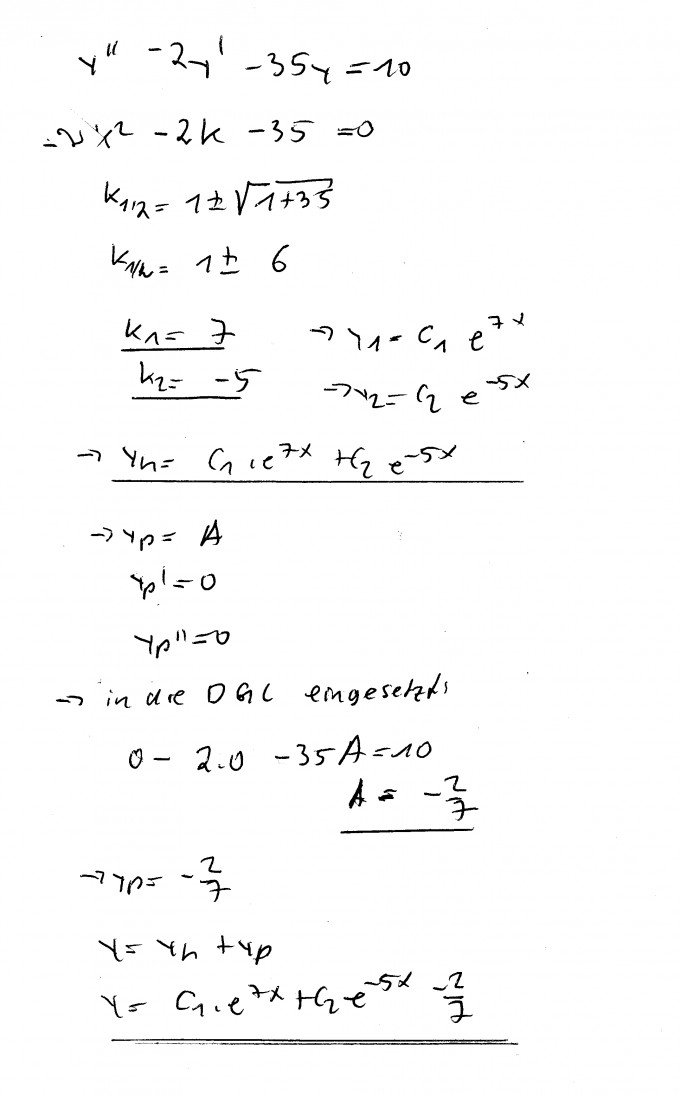 y'' - 2y' - 35y = 10
→ k² - 2k - 35 = 0
k1/2 = 1 ± √1+35
k1/2 = 1 ± 6
k1 = 7 → y1 = C1 e^7x
k2 = -5 → y2 = C2 e^-5x
→ yh = C1 · e^7x + C2 e^-5x
→ yp = A
yp' = 0
yp'' = 0
→ in die DGL eingesetzt:
0 - 2·0 - 35A = 10
A = -2/7
→ yp = -2/7
y = yh + yp
y = C1 · e^7x + C2 e^-5x - 2/7